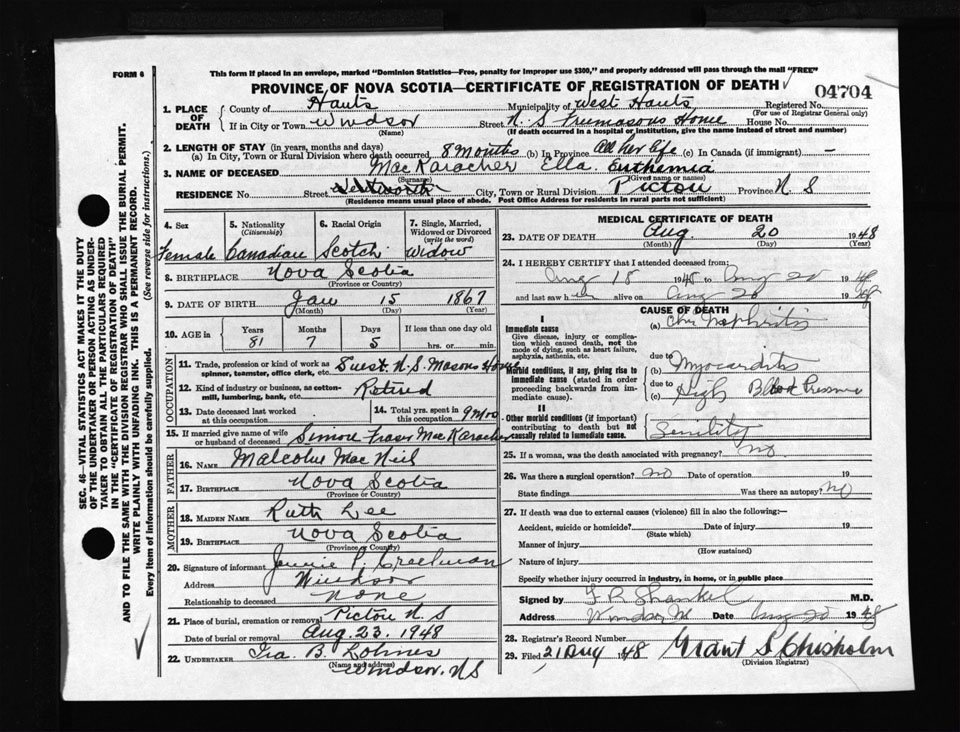 FORM 6
This form if placed in an envelope, marked "Dominion Statistics—Free, penalty for improper use $300," and properly addressed will pass through the mail "FREE"
PROVINCE OF NOVA SCOTIA—CERTIFICATE OF REGISTRATION OF DEATH
04704
1. PLACE OF DEATH
County of Hants Municipality of West Hants Registered No.
(For use of Registrar General only)
If in City or Town Windsor Street N. S Freemasons Home House No.
(Name) (If death occurred in a hospital or institution, give the name instead of street and number)
2. LENGTH OF STAY (in years, months and days)
(a) In City, Town or Rural Division where death occurred 8 months (b) In Province All her life (c) In Canada (if immigrant) —
3. NAME OF DECEASED MacKaracher Ella Euthemia
(Surname) (Given name or names)
RESIDENCE No. Street City, Town or Rural Division Pictou Province N S
(Residence means usual place of abode. Post Office Address for residents in rural parts not sufficient)
4. Sex 5. Nationality (Citizenship) 6. Racial Origin 7. Single, Married, Widowed or Divorced (write the word)
Female Canadian Scotch Widow
8. BIRTHPLACE Nova Scotia
(Province or Country)
9. DATE OF BIRTH Jan 15 1867
(Month) (Day) (Year)
10. AGE in Years Months Days If less than one day old
81 7 5 hrs. or min.
OCCUPATION
11. Trade, profession or kind of work as spinner, teamster, office clerk, etc. Guest N. S. Masons Home
12. Kind of industry or business, as cotton-mill, lumbering, bank, etc. Retired
13. Date deceased last worked at this occupation
14. Total yrs. spent in this occupation 9 mos
15. If married give name of wife or husband of deceased Simon Fraser MacKaracher
FATHER
16. NAME Malcolm MacNeil
17. BIRTHPLACE Nova Scotia
(Province or Country)
MOTHER
18. MAIDEN NAME Ruth Lee
19. BIRTHPLACE Nova Scotia
(Province or Country)
20. Signature of informant Jennie P. Creelman
Address Windsor
Relationship to deceased none
21. Place of burial, cremation or removal Pictou N S
Date of burial or removal Aug. 23. 1948
22. UNDERTAKER Ira B. Lohnes
(Name and address)
Windsor. N S
MEDICAL CERTIFICATE OF DEATH
23. DATE OF DEATH Aug. 20 1948
(Month) (Day) (Year)
24. I HEREBY CERTIFY that I attended deceased from:
Aug 18 1948 to Aug 20 1948
and last saw her alive on Aug 20 1948
CAUSE OF DEATH
I
Immediate cause
Give disease, injury or complication which caused death, not the mode of dying, such as heart failure, asphyxia, asthenia, etc.
(a) Chr Nephritis
due to
Morbid conditions, if any, giving rise to immediate cause (stated in order proceeding backwards from immediate cause).
(b) Myocarditis
due to
(c) High Blood Pressure
II
Other morbid conditions (if important) contributing to death but not causally related to immediate cause.
Senility
25. If a woman, was the death associated with pregnancy? No
26. Was there a surgical operation? No Date of operation 19
State findings Was there an autopsy? No
27. If death was due to external causes (violence) fill in also the following:—
Accident, suicide or homicide? Date of injury 19
(State which)
Manner of injury
(How sustained)
Nature of injury
Specify whether injury occurred in industry, in home, or in public place
Signed by F R Shankel M.D.
Address Windsor NS Date Aug 20 1948
28. Registrar's Record Number
29. Filed 21 Aug 1948 Grant S. Chisholm
(Division Registrar)
SEC. 46—VITAL STATISTICS ACT MAKES IT THE DUTY
OF THE UNDERTAKER OR PERSON ACTING AS UNDER-
TAKER TO OBTAIN ALL THE PARTICULARS REQUIRED
IN THE "CERTIFICATE OF REGISTRATION OF DEATH"
AND TO FILE THE SAME WITH THE DIVISION REGISTRAR WHO SHALL ISSUE THE BURIAL PERMIT.
WRITE PLAINLY WITH UNFADING INK. THIS IS A PERMANENT RECORD.
Every Item of Information should be carefully supplied. (See reverse side for instructions.)